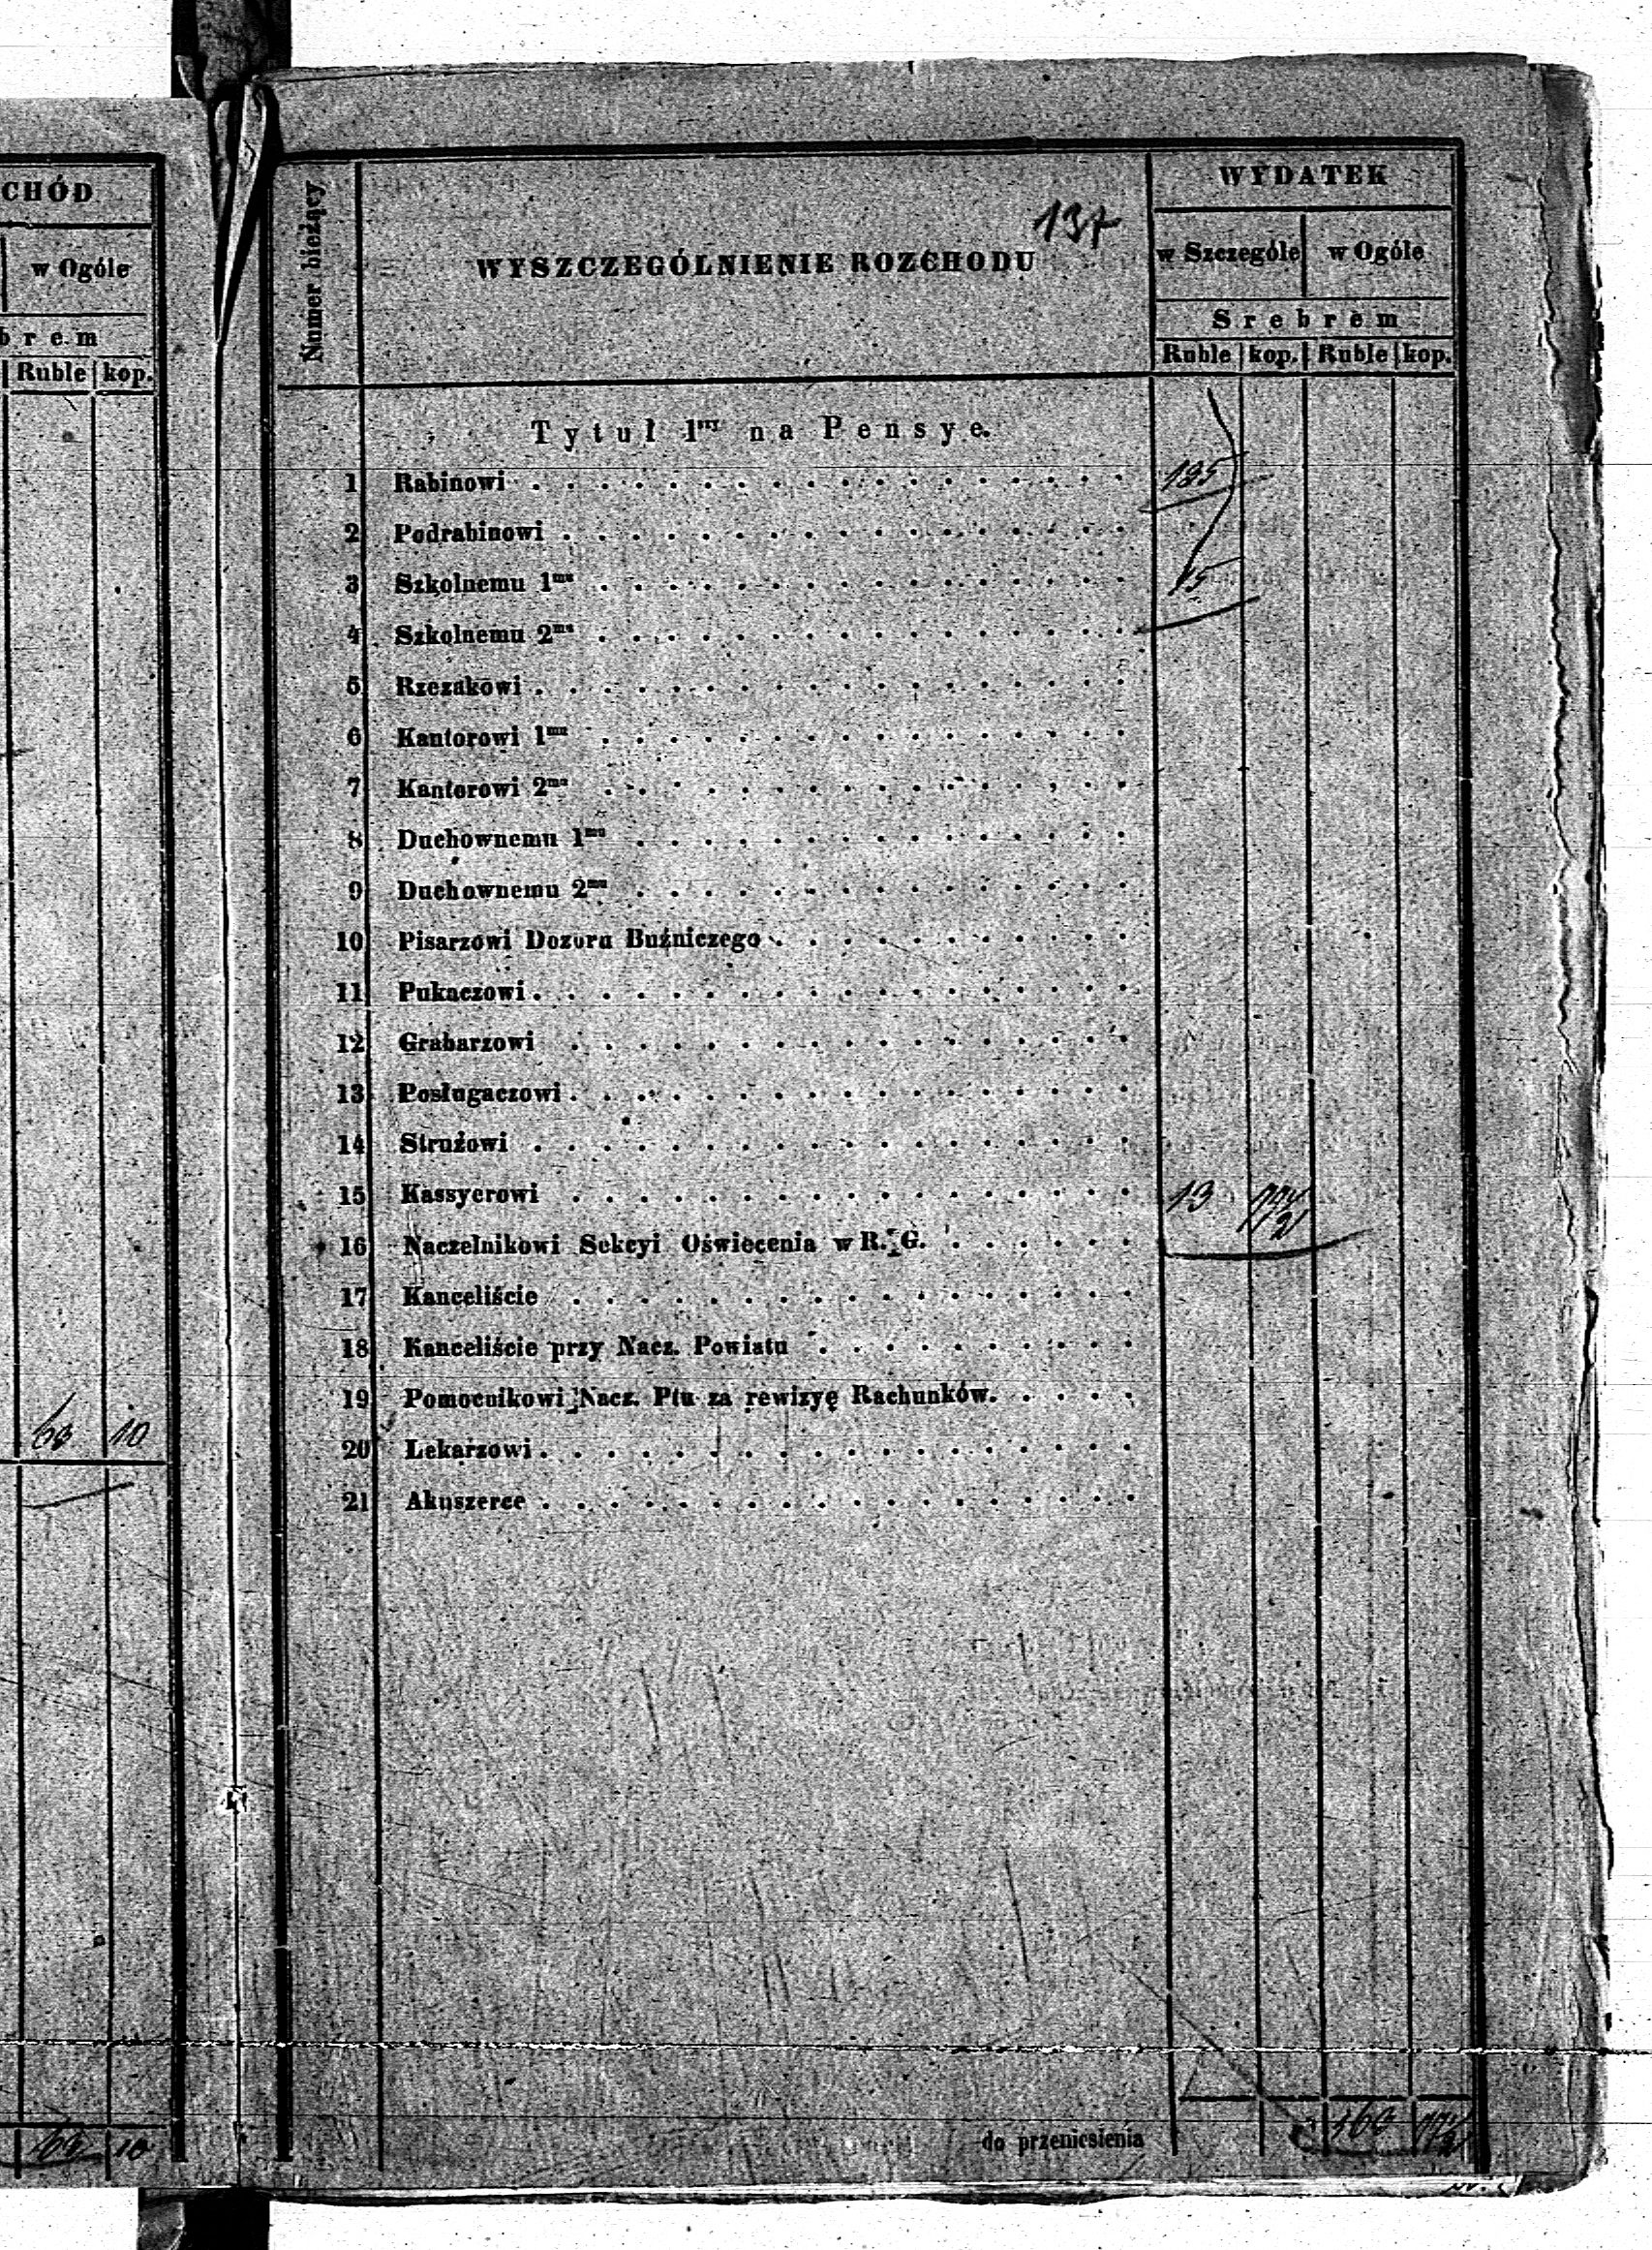 CHÓD
w Ogóle
brem
Ruble kop.
63 10
63 10
137
Nomer bieżący
WYSZCZEGÓLNIENIE ROZCHODU
WYDATEK
w Szczególe w Ogóle
Srebrem
Ruble kop. Ruble kop.
Tytuł 1ry na Pensye.
1 Rabinowi . . . . . . . . . . . . . . . . . .
2 Podrabinowi . . . . . . . . . . . . . . . . .
3 Szkolnemu 1mu . . . . . . . . . . . . . . . . 15
4 Szkolnemu 2mu . . . . . . . . . . . . . . . .
5 Rzezakowi . . . . . . . . . . . . . . . . . .
6 Kantorowi 1mu . . . . . . . . . . . . . . . .
7 Kantorowi 2mu . . . . . . . . . . . . . . . .
8 Duchownemu 1mu . . . . . . . . . . . . . . .
9 Duchownemu 2mu . . . . . . . . . . . . . . .
10 Pisarzowi Dozoru Buźniczego . . . . . . . . . . .
11 Pukaczowi . . . . . . . . . . . . . . . . . .
12 Grabarzowi . . . . . . . . . . . . . . . . .
13 Posługaczowi . . . . . . . . . . . . . . . . .
14 Strużowi . . . . . . . . . . . . . . . . . .
15 Kassyerowi . . . . . . . . . . . . . . . . . 13
16 Naczelnikowi Sekcyi Oświecenia w R. G. . . . . . .
17 Kanceliście . . . . . . . . . . . . . . . . .
18 Kanceliście przy Nacz. Powiatu . . . . . . . . . .
19 Pomocnikowi Nacz. Ptu za rewizyę Rachunków. . . . .
20 Lekarzowi . . . . . . . . . . . . . . . . . .
21 Akuszerce . . . . . . . . . . . . . . . . . .
do przeniesienia